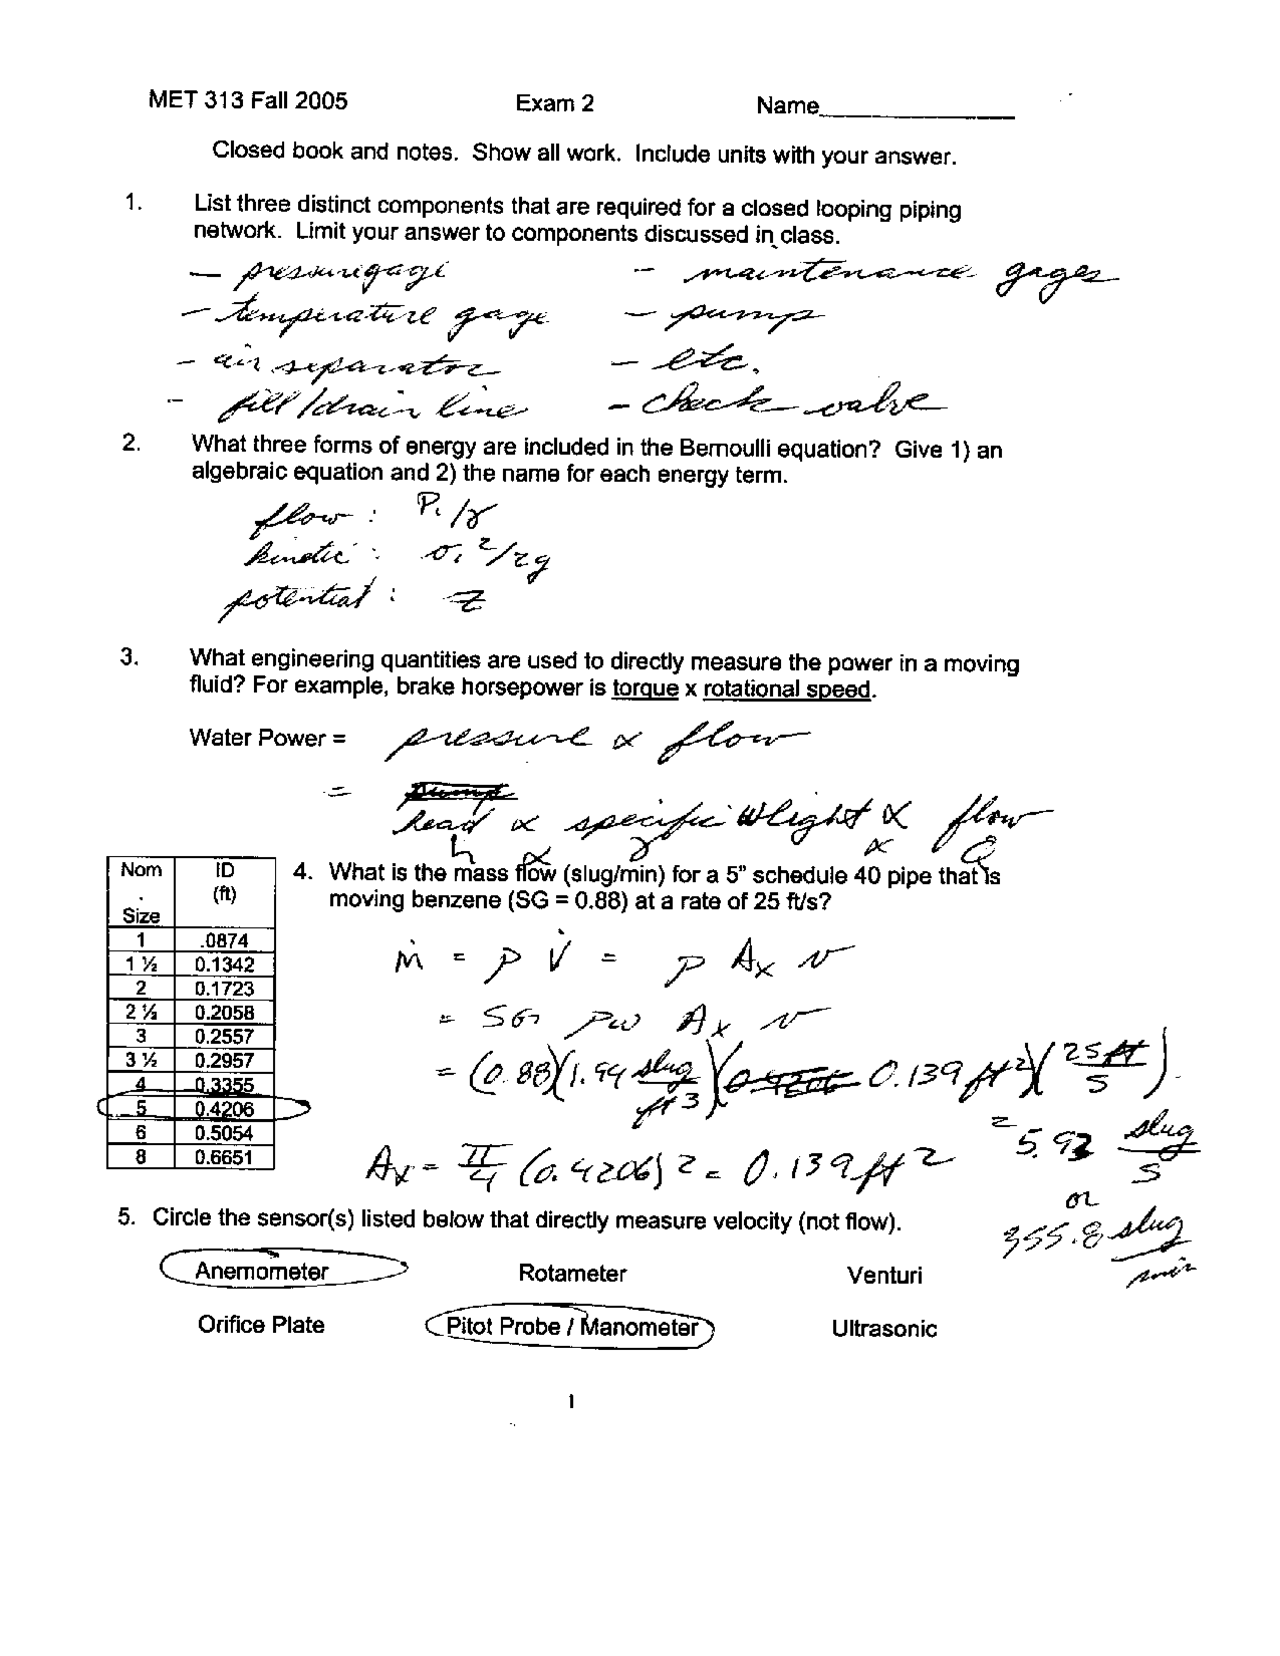 MET 313 Fall 2005 Exam 2 Name
Closed book and notes. Show all work. Include units with your answer.
1. List three distinct components that are required for a closed looping piping
network. Limit your answer to components discussed in class.
— pressure gage – maintenance gages
– temperature gage – pump
– air separator – etc.
– fill/drain line – check valve
2. What three forms of energy are included in the Bernoulli equation? Give 1) an
algebraic equation and 2) the name for each energy term.
flow : P₁/γ
kinetic : v₁²/2g
potential : z
3. What engineering quantities are used to directly measure the power in a moving
fluid? For example, brake horsepower is torque x rotational speed.
Water Power = pressure x flow
= head x specific weight x flow
h x γ x Q
Nom. Size ID (ft)
1 .0874
1 ½ 0.1342
2 0.1723
2 ½ 0.2058
3 0.2557
3 ½ 0.2957
4 0.3355
5 0.4206
6 0.5054
8 0.6651
4. What is the mass flow (slug/min) for a 5" schedule 40 pipe that is
moving benzene (SG = 0.88) at a rate of 25 ft/s?
ṁ = ρ V̇ = ρ Ax v
= SG ρw Ax v
= (0.88)(1.94 slug/ft3)(0.139 ft2)(25 ft/s)
= 5.93 slug/s
Ax = π/4 (0.4206)2 = 0.139 ft2
or
355.8 slug/min
5. Circle the sensor(s) listed below that directly measure velocity (not flow).
Anemometer Rotameter Venturi
Orifice Plate Pitot Probe / Manometer Ultrasonic
1